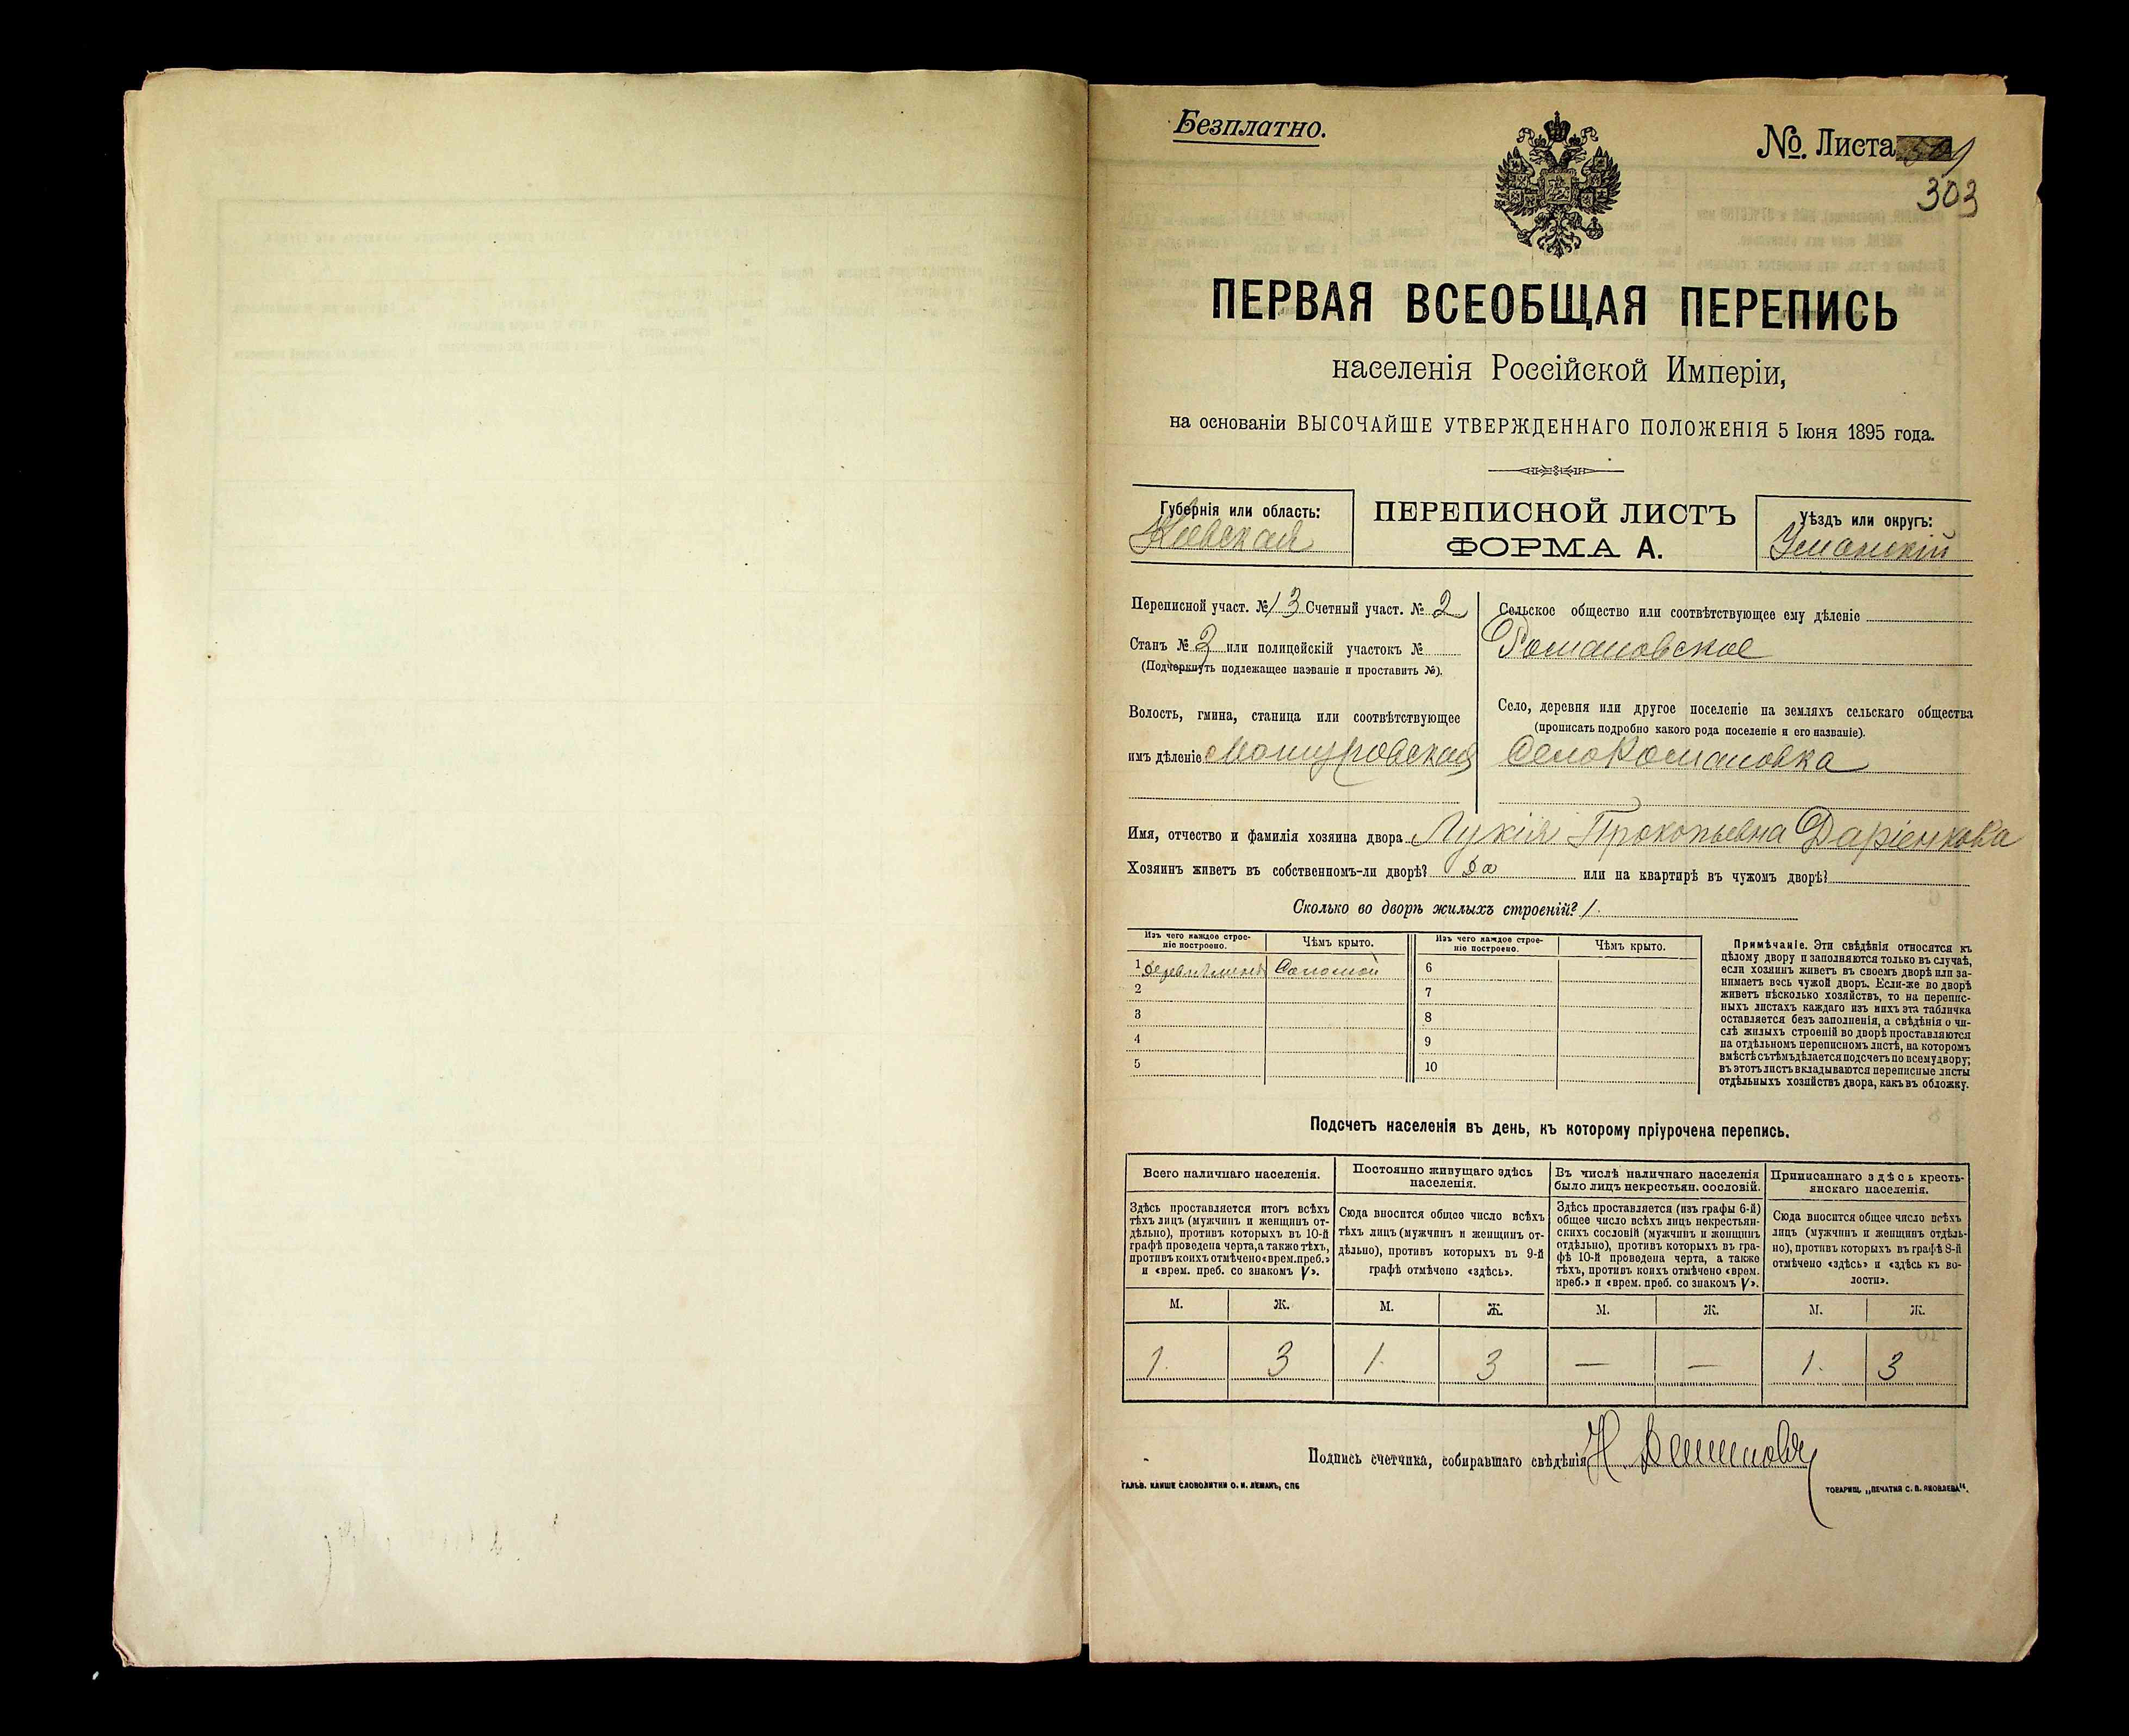 Безплатно.
№. Листа
303
ПЕРВАЯ ВСЕОБЩАЯ ПЕРЕПИСЬ
населенія Россійской Имперіи,
на основаніи ВЫСОЧАЙШЕ УТВЕРЖДЕННАГО ПОЛОЖЕНІЯ 5 Іюня 1895 года.
Губернія или область:
Кіевская
ПЕРЕПИСНОЙ ЛИСТЪ
ФОРМА А.
Уѣздъ или округъ:
Уманскій
Переписной участ. № 13 Счетный участ. № 2
Станъ № 3 или полицейскій участокъ №
(Подчеркнуть подлежащее названіе и проставить №).
Волость, гмина, станица или соотвѣтствующее
имъ дѣленіе Машуровская
Сельское общество или соотвѣтствующее ему дѣленіе
Романовское
Село, деревня или другое поселеніе на земляхъ сельскаго общества
(прописать подробно какого рода поселеніе и его названіе).
Село Романовка
Имя, отчество и фамилія хозяина двора Лукія Прокопьевна Даріенкова
Хозяинъ живетъ въ собственномъ-ли дворѣ? Да или на квартирѣ въ чужомъ дворѣ?
Сколько во дворѣ жилыхъ строеній? 1.
Изъ чего каждое строе-
ніе построено.
Чѣмъ крыто.
Изъ чего каждое строе-
ніе построено.
Чѣмъ крыто.
1 Соломой
2
3
4
5
6
7
8
9
10
Примѣчаніе. Эти свѣдѣнія относятся къ
цѣлому двору и заполняются только въ случаѣ,
если хозяинъ живетъ въ своемъ дворѣ или за-
нимаетъ весь чужой дворъ. Если-же во дворѣ
живетъ нѣсколько хозяйствъ, то на перепис-
ныхъ листахъ каждаго изъ нихъ эта табличка
оставляется безъ заполненія, а свѣдѣнія о чи-
слѣ жилыхъ строеній во дворѣ проставляются
на отдѣльномъ переписномъ листѣ, на которомъ
вмѣстѣ съ тѣмъ дѣлается подсчетъ по всему двору;
въ этотъ листъ вкладываются переписные листы
отдѣльныхъ хозяйствъ двора, какъ въ обложку.
Подсчетъ населенія въ день, къ которому пріурочена перепись.
Всего наличнаго населенія.
Здѣсь проставляется итогъ всѣхъ
тѣхъ лицъ (мужчинъ и женщинъ от-
дѣльно), противъ которыхъ въ 10-й
графѣ проведена черта, а также тѣхъ,
противъ коихъ отмѣчено «врем. преб.»
и «врем. преб. со знакомъ V».
Постоянно живущаго здѣсь
населенія.
Сюда вносится общее число всѣхъ
тѣхъ лицъ (мужчинъ и женщинъ от-
дѣльно), противъ которыхъ въ 9-й
графѣ отмѣчено «здѣсь».
Въ числѣ наличнаго населенія
было лицъ некрестьян. сословій.
Здѣсь проставляется (изъ графы 6-й)
общее число всѣхъ лицъ некрестьян-
скихъ сословій (мужчинъ и женщинъ
отдѣльно), противъ которыхъ въ гра-
фѣ 10-й проведена черта, а также
тѣхъ, противъ коихъ отмѣчено «врем.
преб.» и «врем. преб. со знакомъ V».
Приписаннаго здѣсь кресть-
янскаго населенія.
Сюда вносится общее число всѣхъ
лицъ (мужчинъ и женщинъ отдѣль-
но), противъ которыхъ въ графѣ 8-й
отмѣчено «здѣсь» и «здѣсь къ во-
лости».
М. Ж. М. Ж. М. Ж. М. Ж.
1. 3 1. 3 — — 1. 3
Подпись счетчика, собиравшаго свѣдѣнія Н.
ГАЛЬВ. КЛИШЕ СЛОВОЛИТНИ О. И. ЛЕМАНЪ, СПБ
ТОВАРИЩ. „ПЕЧАТНЯ С. П. ЯКОВЛЕВА“.